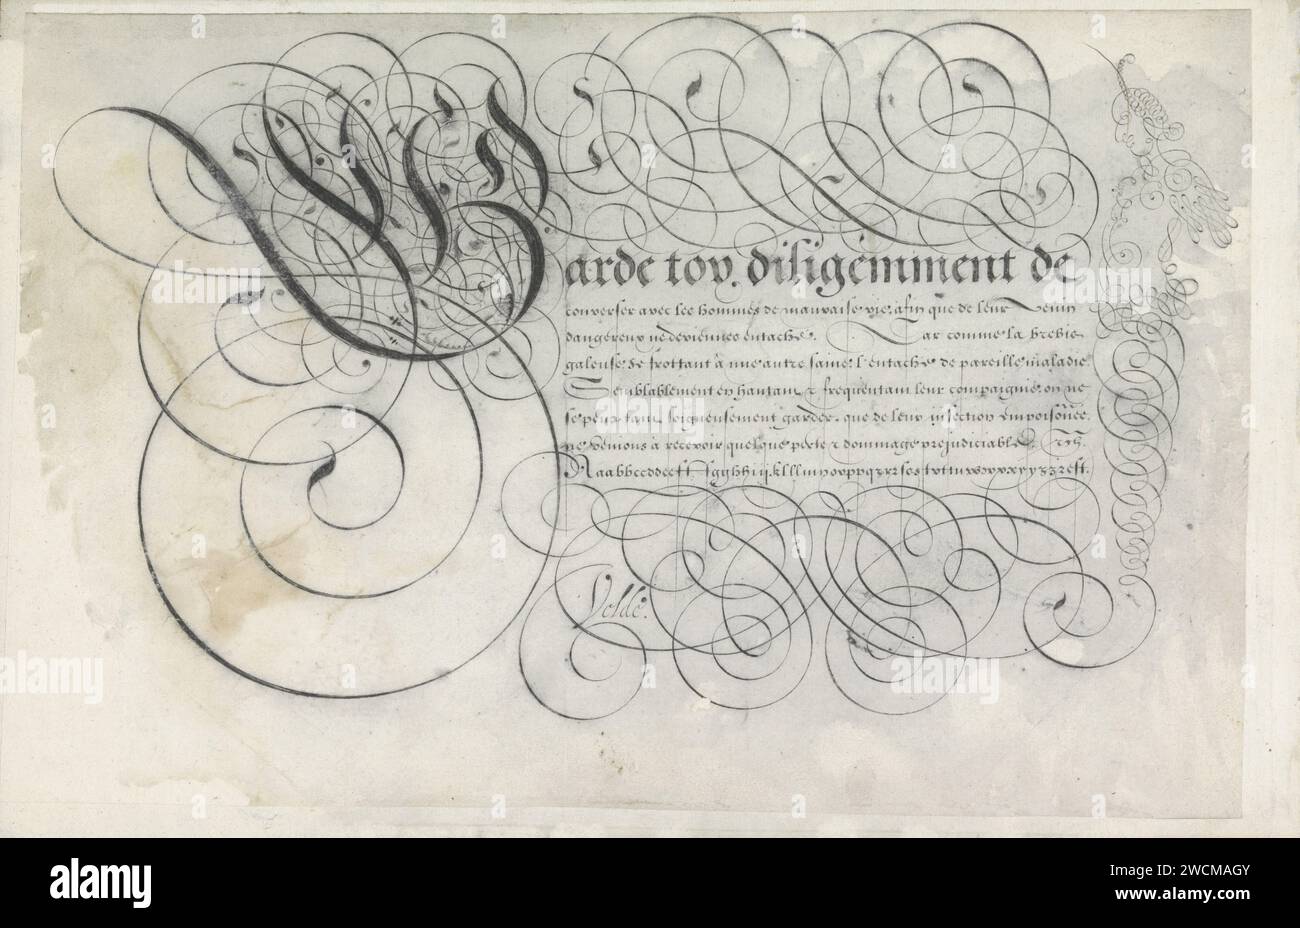 Garde toy. diligemment de
converser avec les hommes de mauvaise vie, afin que de leur venin
dangereux ne deviennes entaché. Car comme la brebis
galeuse. se frottant à une autre saine: l'entache de pareille maladie.
Semblablement en hantant & frequentant leur compaignie, on ne
se peut tant soigneusement garder, que de leur infection empoisonée,
ne venions à recevoir quelque perte & dommage prejudiciable.
Velde.
alamy
Image ID: 2WCMAGY
www.alamy.com